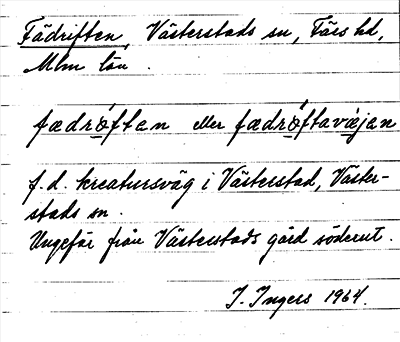 Fädriften, Västerstads sn, Färs hd,
Mlm län.
fædrǫ́ftan eller fædrǫ́ftavę̀jan
f.d. kreatursväg i Västerstad, Väster-
stads sn.
Ungefär från Västerstads gård söderut.
I. Ingers 1964.